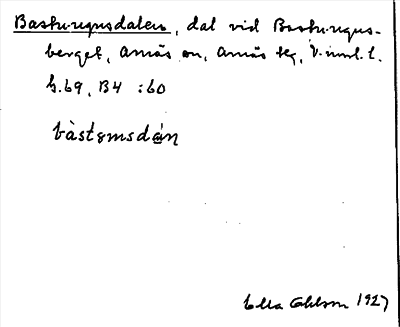 Basturugnsdalen, dal vid Basturugns-
berget, Amnäs on, Amnäs by, V:inl. l.
b.69, B4 :60
bàstǝrnsdán
Ella Ohlson 1927